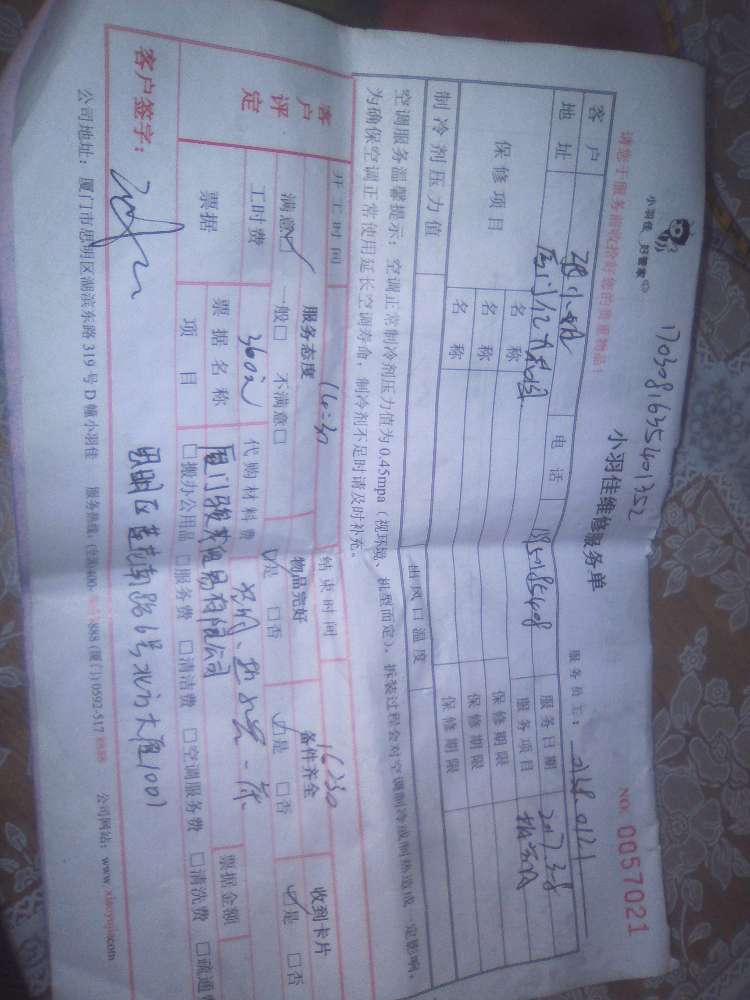 小羽佳 好管家
1703081635401352
小羽佳维修服务单
NO. 0057021
请您于服务前收拾好您的贵重物品！
服务员工： 0138.0121
客户 电话 服务日期 2017.3.8
地址 服务项目
保修项目 名称 保修期限
名称 保修期限
名称 保修期限
制冷剂压力值 出风口温度
空调服务温馨提示：空调正常制冷剂压力值为0.45mpa（视环境、机型而定），拆装过程会对空调制冷或制热造成一定影响，
为确保空调正常使用延长空调寿命，制冷剂不足时请及时补充。
开工时间 14:30 结束时间 16:30
客户评定 服务态度 物品完好 备件齐全 收到卡片
满意□ 一般□ 不满意□ □是 □否 □是 □否 □是 □否
工时费 360元 代购材料费
票据 票据名称 票据金额
项目 □搬办公用品 □服务费 □清洁费 □空调服务费 □清洗费 □疏通
客户签字：
思明区莲花南路6号北方大厦1001
公司地址：厦门市思明区湖滨东路319号D幢小羽佳 服务热线：(全国)400- -888 (厦门)0592-517 8888 公司网站：www.xiaoyujia.com